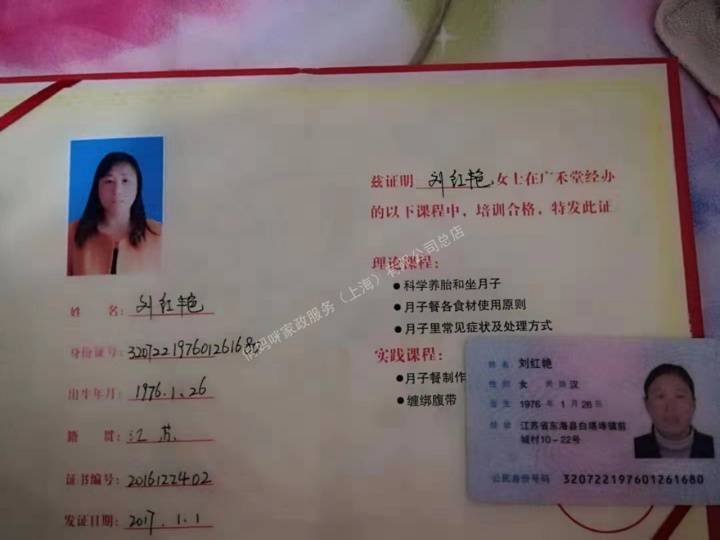 兹证明 刘红艳 女士在广禾堂经办
的以下课程中，培训合格，特发此证
理论课程：
●科学养胎和坐月子
●月子餐各食材使用原则
●月子里常见症状及处理方式
实践课程：
●月子餐制作
●缠绑腹带
姓 名：刘红艳
身份证号：320722197601261680
出生年月：1976.1.26
籍 贯：江苏
证书编号：2016122402
发证日期：2017.1.1
姓名 刘红艳
性别 女 民族 汉
出生 1976 年 1 月 26 日
住址 江苏省东海县白塔埠镇前
城村10-22号
公民身份号码 320722197601261680
妈咪家政服务（上海）有限公司总店